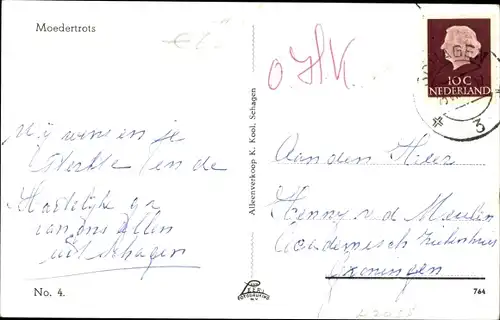 Moedertrots
Wij wensen je
Sterkte en de
Hartelijke gr
van ons Allen
uit Schagen
No. 4.
Alleenverkoop K. Kool, Schagen
o.H.K.
10 C
NEDERLAND
3
Aan den Heer
Henny v.d. Meulen
Academisch Ziekenhuis
Groningen
764